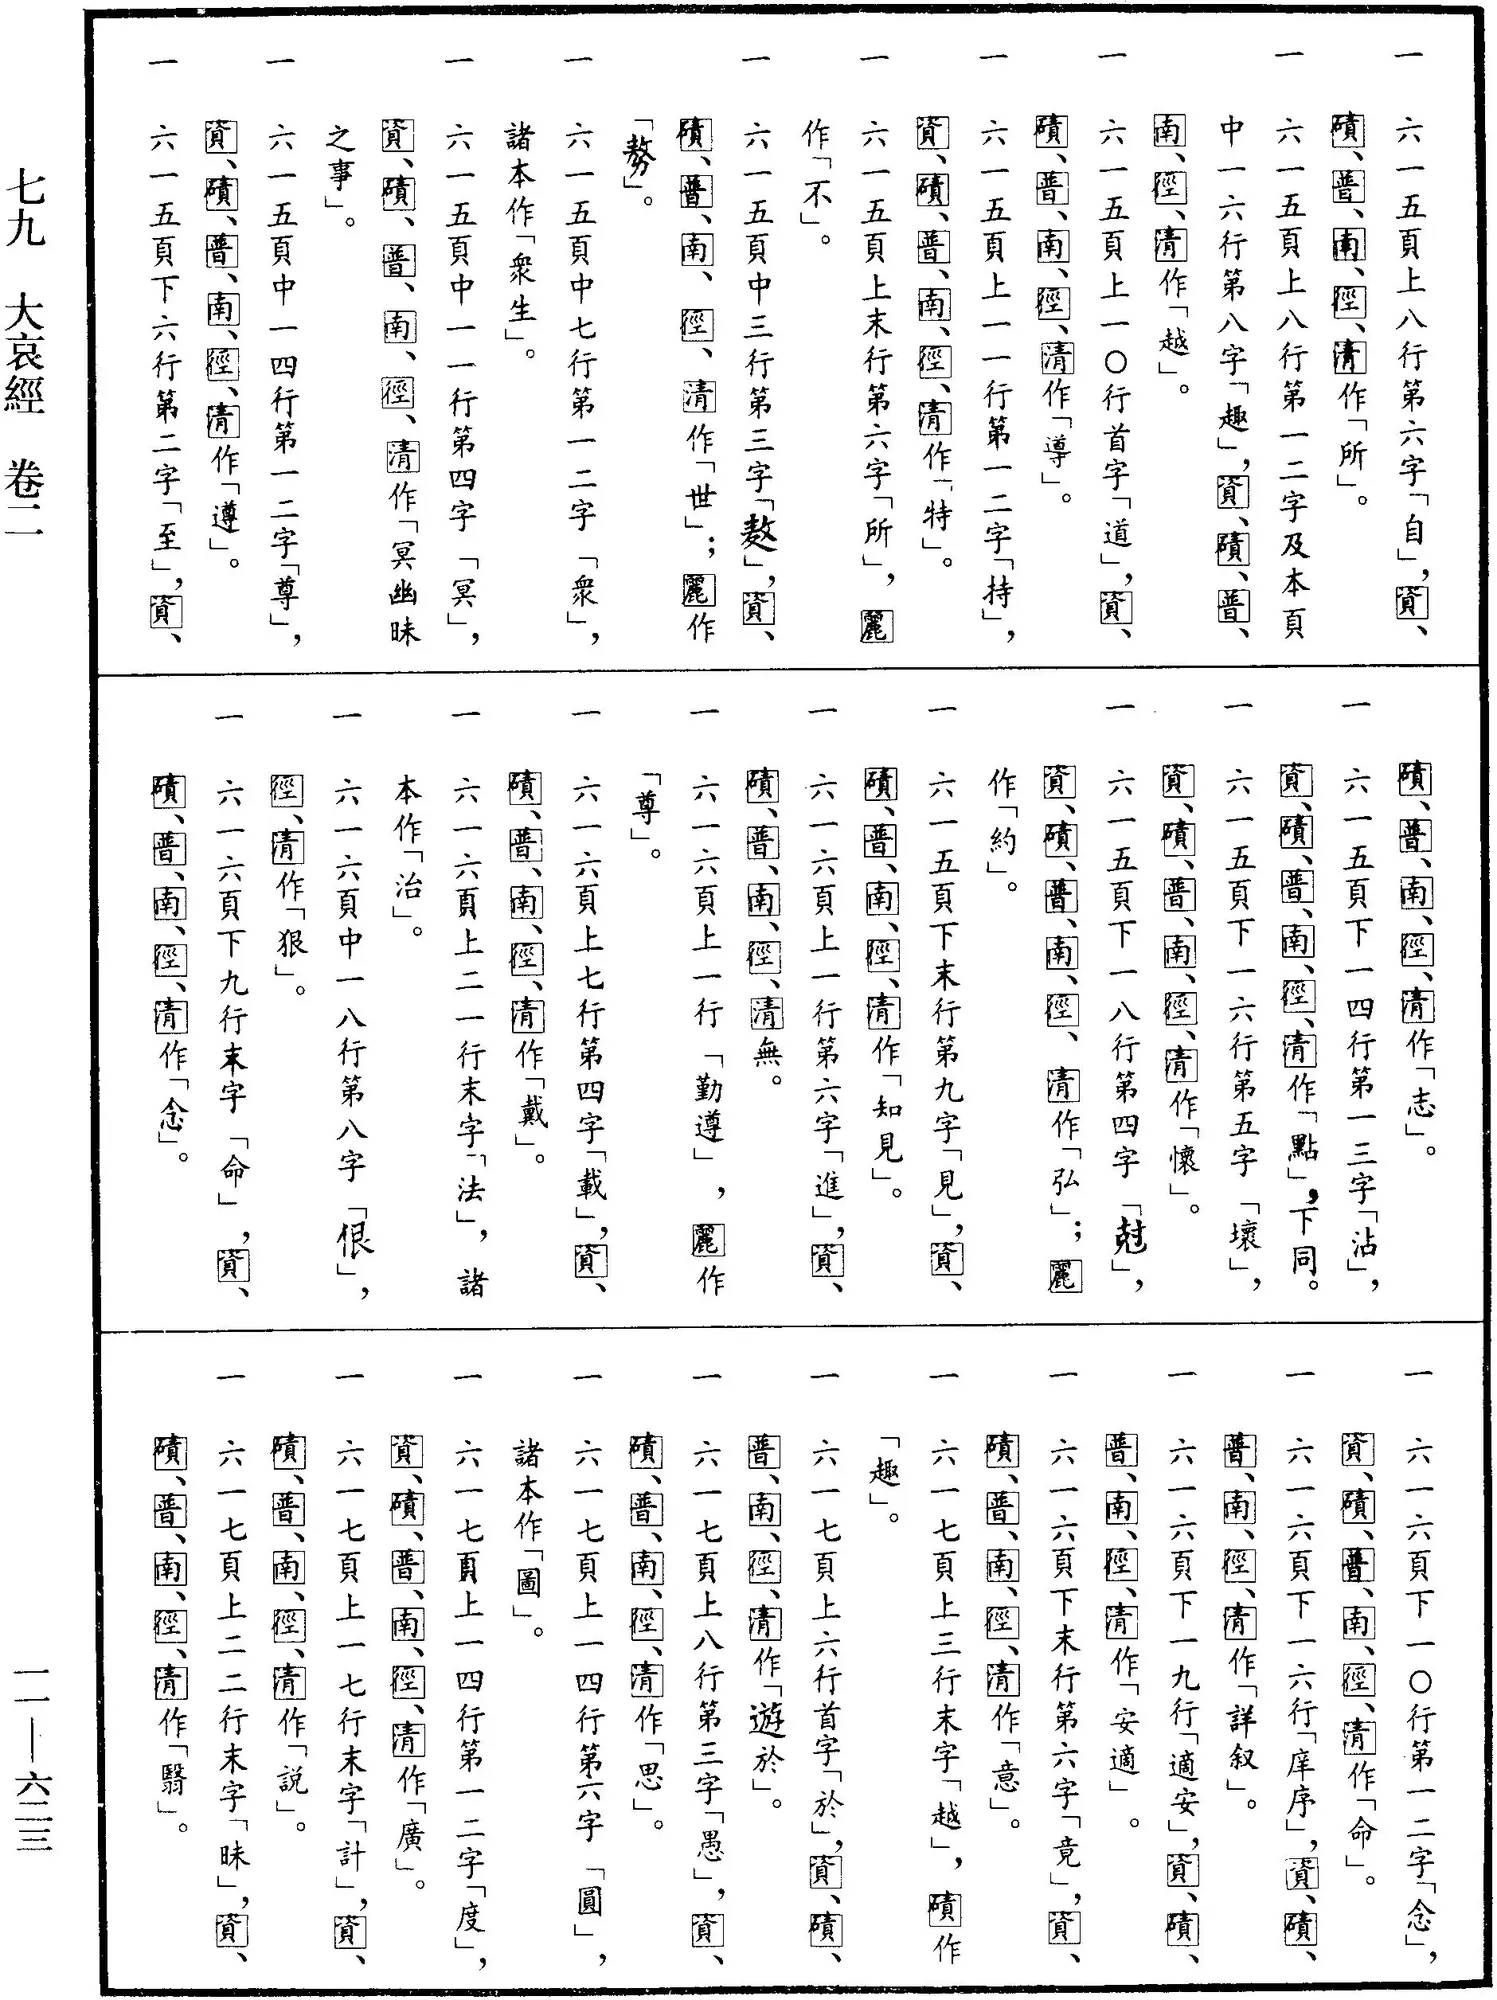 一　六一五頁上八行第六字「自」，資、
磧、普、南、徑、清作「所」。
一　六一五頁上八行第一二字及本頁
中一六行第八字「趣」，資、磧、普、
南、徑、清作「越」。
一　六一五頁上一〇行首字「道」，資、
磧、普、南、徑、清作「導」。
一　六一五頁上一一行第一二字「持」，
資、磧、普、南、徑、清作「特」。
一　六一五頁上末行第六字「所」，麗
作「不」。
一　六一五頁中三行第三字「敖」，資、
磧、普、南、徑、清作「世」；麗作
「嶅」。
一　六一五頁中七行第一二字「衆」，
諸本作「衆生」。
一　六一五頁中一一行第四字「冥」，
資、磧、普、南、徑、清作「冥幽昧
之事」。
一　六一五頁中一四行第一二字「尊」，
資、磧、普、南、徑、清作「遵」。
一　六一五頁下六行第二字「至」，資、
磧、普、南、徑、清作「志」。
一　六一五頁下一四行第一三字「沾」，
資、磧、普、南、徑、清作「點」，下同。
一　六一五頁下一六行第五字「壞」，
資、磧、普、南、徑、清作「懷」。
一　六一五頁下一八行第四字「尅」，
資、磧、普、南、徑、清作「弘」；麗
作「約」。
一　六一五頁下末行第九字「見」，資、
磧、普、南、徑、清作「知見」。
一　六一六頁上一行第六字「進」，資、
磧、普、南、徑、清無。
一　六一六頁上一行「勤遵」，麗作
「尊」。
一　六一六頁上七行第四字「載」，資、
磧、普、南、徑、清作「戴」。
一　六一六頁上二一行末字「法」，諸
本作「治」。
一　六一六頁中一八行第八字「佷」，
徑、清作「狠」。
一　六一六頁下九行末字「命」，資、
磧、普、南、徑、清作「念」。
一　六一六頁下一〇行第一二字「念」，
資、磧、普、南、徑、清作「命」。
一　六一六頁下一六行「庠序」，資、磧、
普、南、徑、清作「詳叙」。
一　六一六頁下一九行「適安」，資、磧、
普、南、徑、清作「安適」。
一　六一六頁下末行第六字「竟」，資、
磧、普、南、徑、清作「意」。
一　六一七頁上三行末字「越」，磧作
「趣」。
一　六一七頁上六行首字「於」，資、磧、
普、南、徑、清作「遊於」。
一　六一七頁上八行第三字「愚」，資、
磧、普、南、徑、清作「思」。
一　六一七頁上一四行第六字「圓」，
諸本作「圖」。
一　六一七頁上一四行第一二字「度」，
資、磧、普、南、徑、清作「廣」。
一　六一七頁上一七行末字「計」，資、
磧、普、南、徑、清作「說」。
一　六一七頁上二二行末字「昧」，資、
磧、普、南、徑、清作「翳」。
七九　大哀經　卷二
一一—六二三